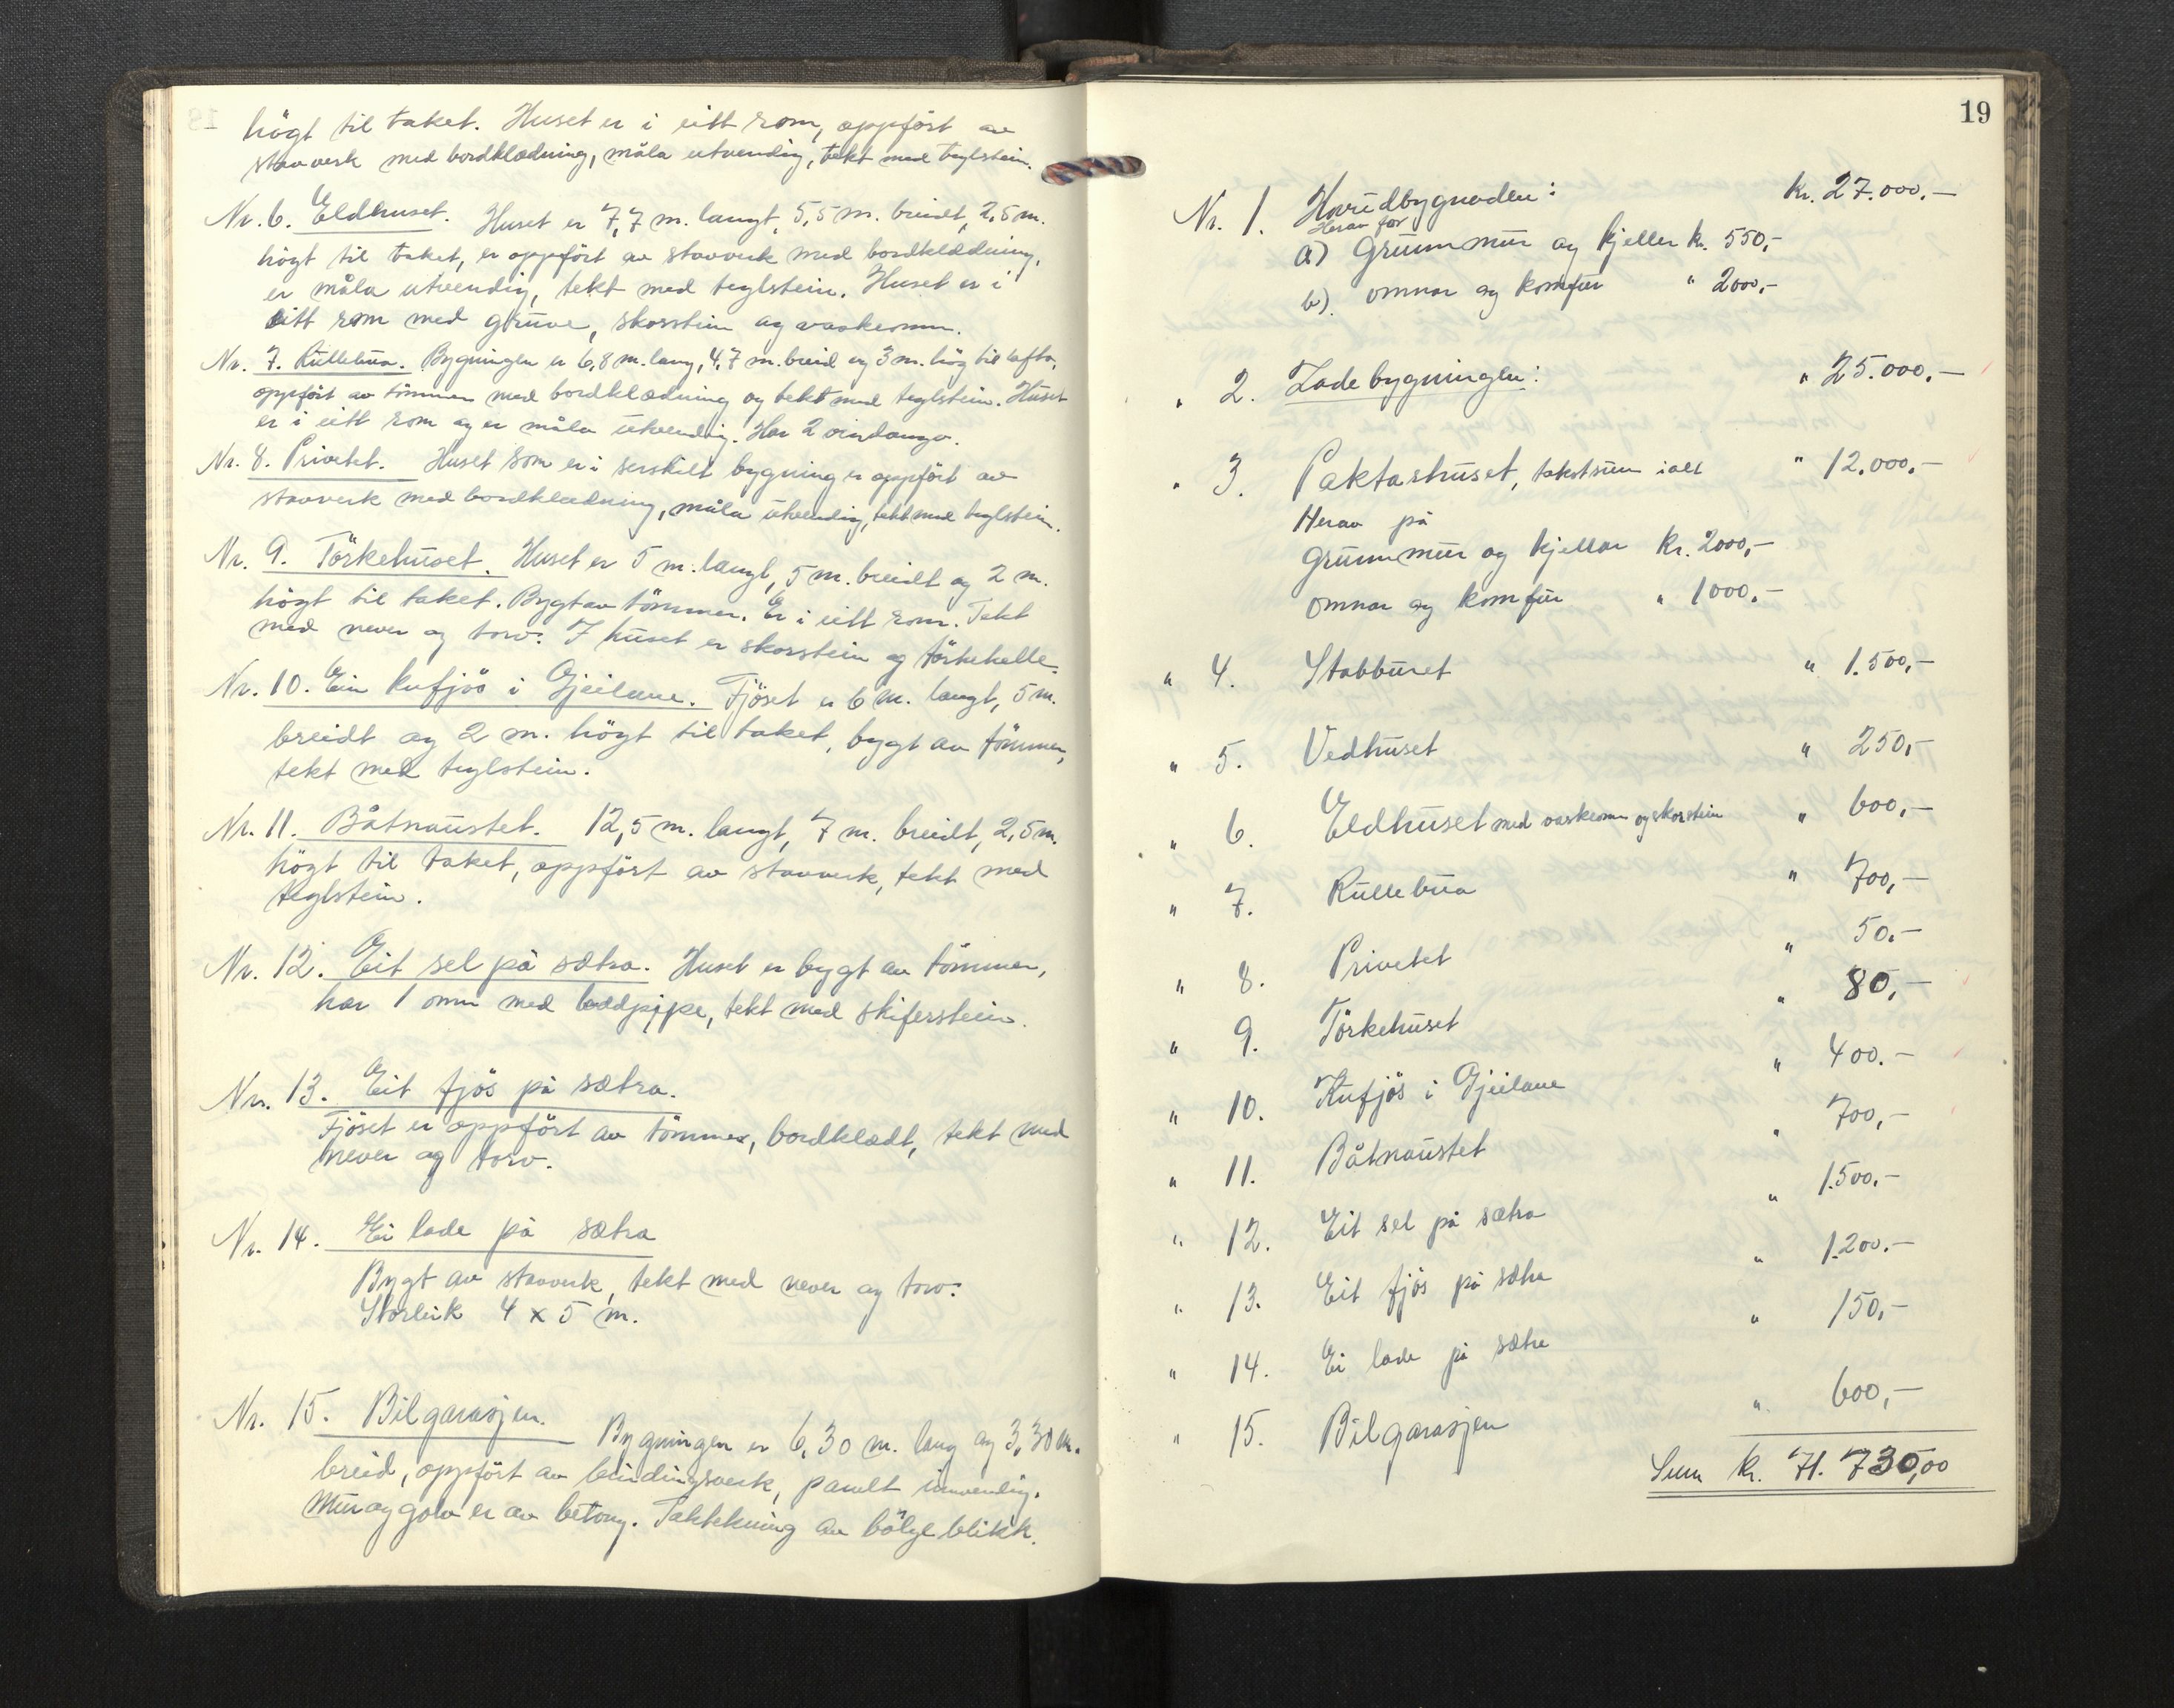 högt til taket. Huset er i eitt rom, oppfört av
stavverk med bordklædning, måla utvendig, tekt med teglstein.
Nr. 6. Eldhuset. Huset er 7,7 m. langt, 5,5 m. breidt, 2,5 m.
högt til taket, er oppfört av stavverk med bordklædning,
er måla utvendig, tekt med teglstein. Huset er i
eitt rom med gruve, skorstein og vaskeomn.
Nr. 7. Rullebua. Bygningen er 6,8 m. lang, 4,7 m. breid og 3 m. hög til lofta,
oppfört av tömmer med bordklædning og tekt med teglstein. Huset
er i eitt rom og er måla utvendig. Har 2 vindaugo.
Nr. 8. Privetet. Huset som er i serskilt bygning er oppfört av
stavverk med bordklædning, måla utvendig, tekt med teglstein.
Nr. 9. Törkehuset. Huset er 5 m. langt, 5 m. breidt og 2 m.
högt til taket. Bygt av tömmer. Er i eitt rom. Tekt
med never og torv. I huset er skorstein og törkehelle.
Nr. 10. Ein kufjös i Gjeilane. Fjöset er 6 m. langt, 5 m.
breidt og 2 m. högt til taket, bygt av tömmer,
tekt med teglstein.
Nr. 11. Båtnaustet. 12,5 m. langt, 7 m. breidt, 2,5 m.
högt til taket, oppfört av stavverk, tekt med
teglstein.
Nr. 12. Eit sel på sætra. Huset er bygt av tömmer,
har 1 omn med leddpipe, tekt med skiferstein.
Nr. 13. Eit fjös på sætra.
Fjöset er oppfört av tömmer, bordklædt, tekt med
never og torv.
Nr. 14. Ei lade på sætra
Bygt av stavverk, tekt med never og torv.
Storleik 4 x 5 m.
Nr. 15. Bilgarasjen. Bygningen er 6,30 m. lang og 3,30 m.
breid, oppfört av bindingsverk, panelt innvendig.
Mur og golv er av betong. Taktekning av bölgeblikk.
19
Nr. 1. Hovudbygnaden: kr. 27.000,-
Herav for
a) Grunnmur og kjeller kr. 550,-
b) omnar og komfur " 2000,-
" 2. Ladebygningen: " 25.000,-
" 3. Paktarhuset, takstsum ialt " 12.000,-
Herav på
Grunnmur og kjellar kr. 2000,-
omnar og komfur " 1000,-
" 4. Stabburet " 1.500,-
" 5. Vedhuset " 250,-
" 6. Eldhuset med vaskeomn og skorstein " 600,-
" 7. Rullebua " 700,-
" 8. Privetet " 50.-
" 9. Törkehuset " 80,-
" 10. Kufjös i Gjeilane " 400.-
" 11. Båtnaustet " 700,-
" 12. Eit sel på sætra " 1.500,-
" 13. Eit fjös på sætra " 1.200.-
" 14. Ei lade på sætra " 150,-
" 15. Bilgarasjen " 600,-
Sum kr. 71.730,00